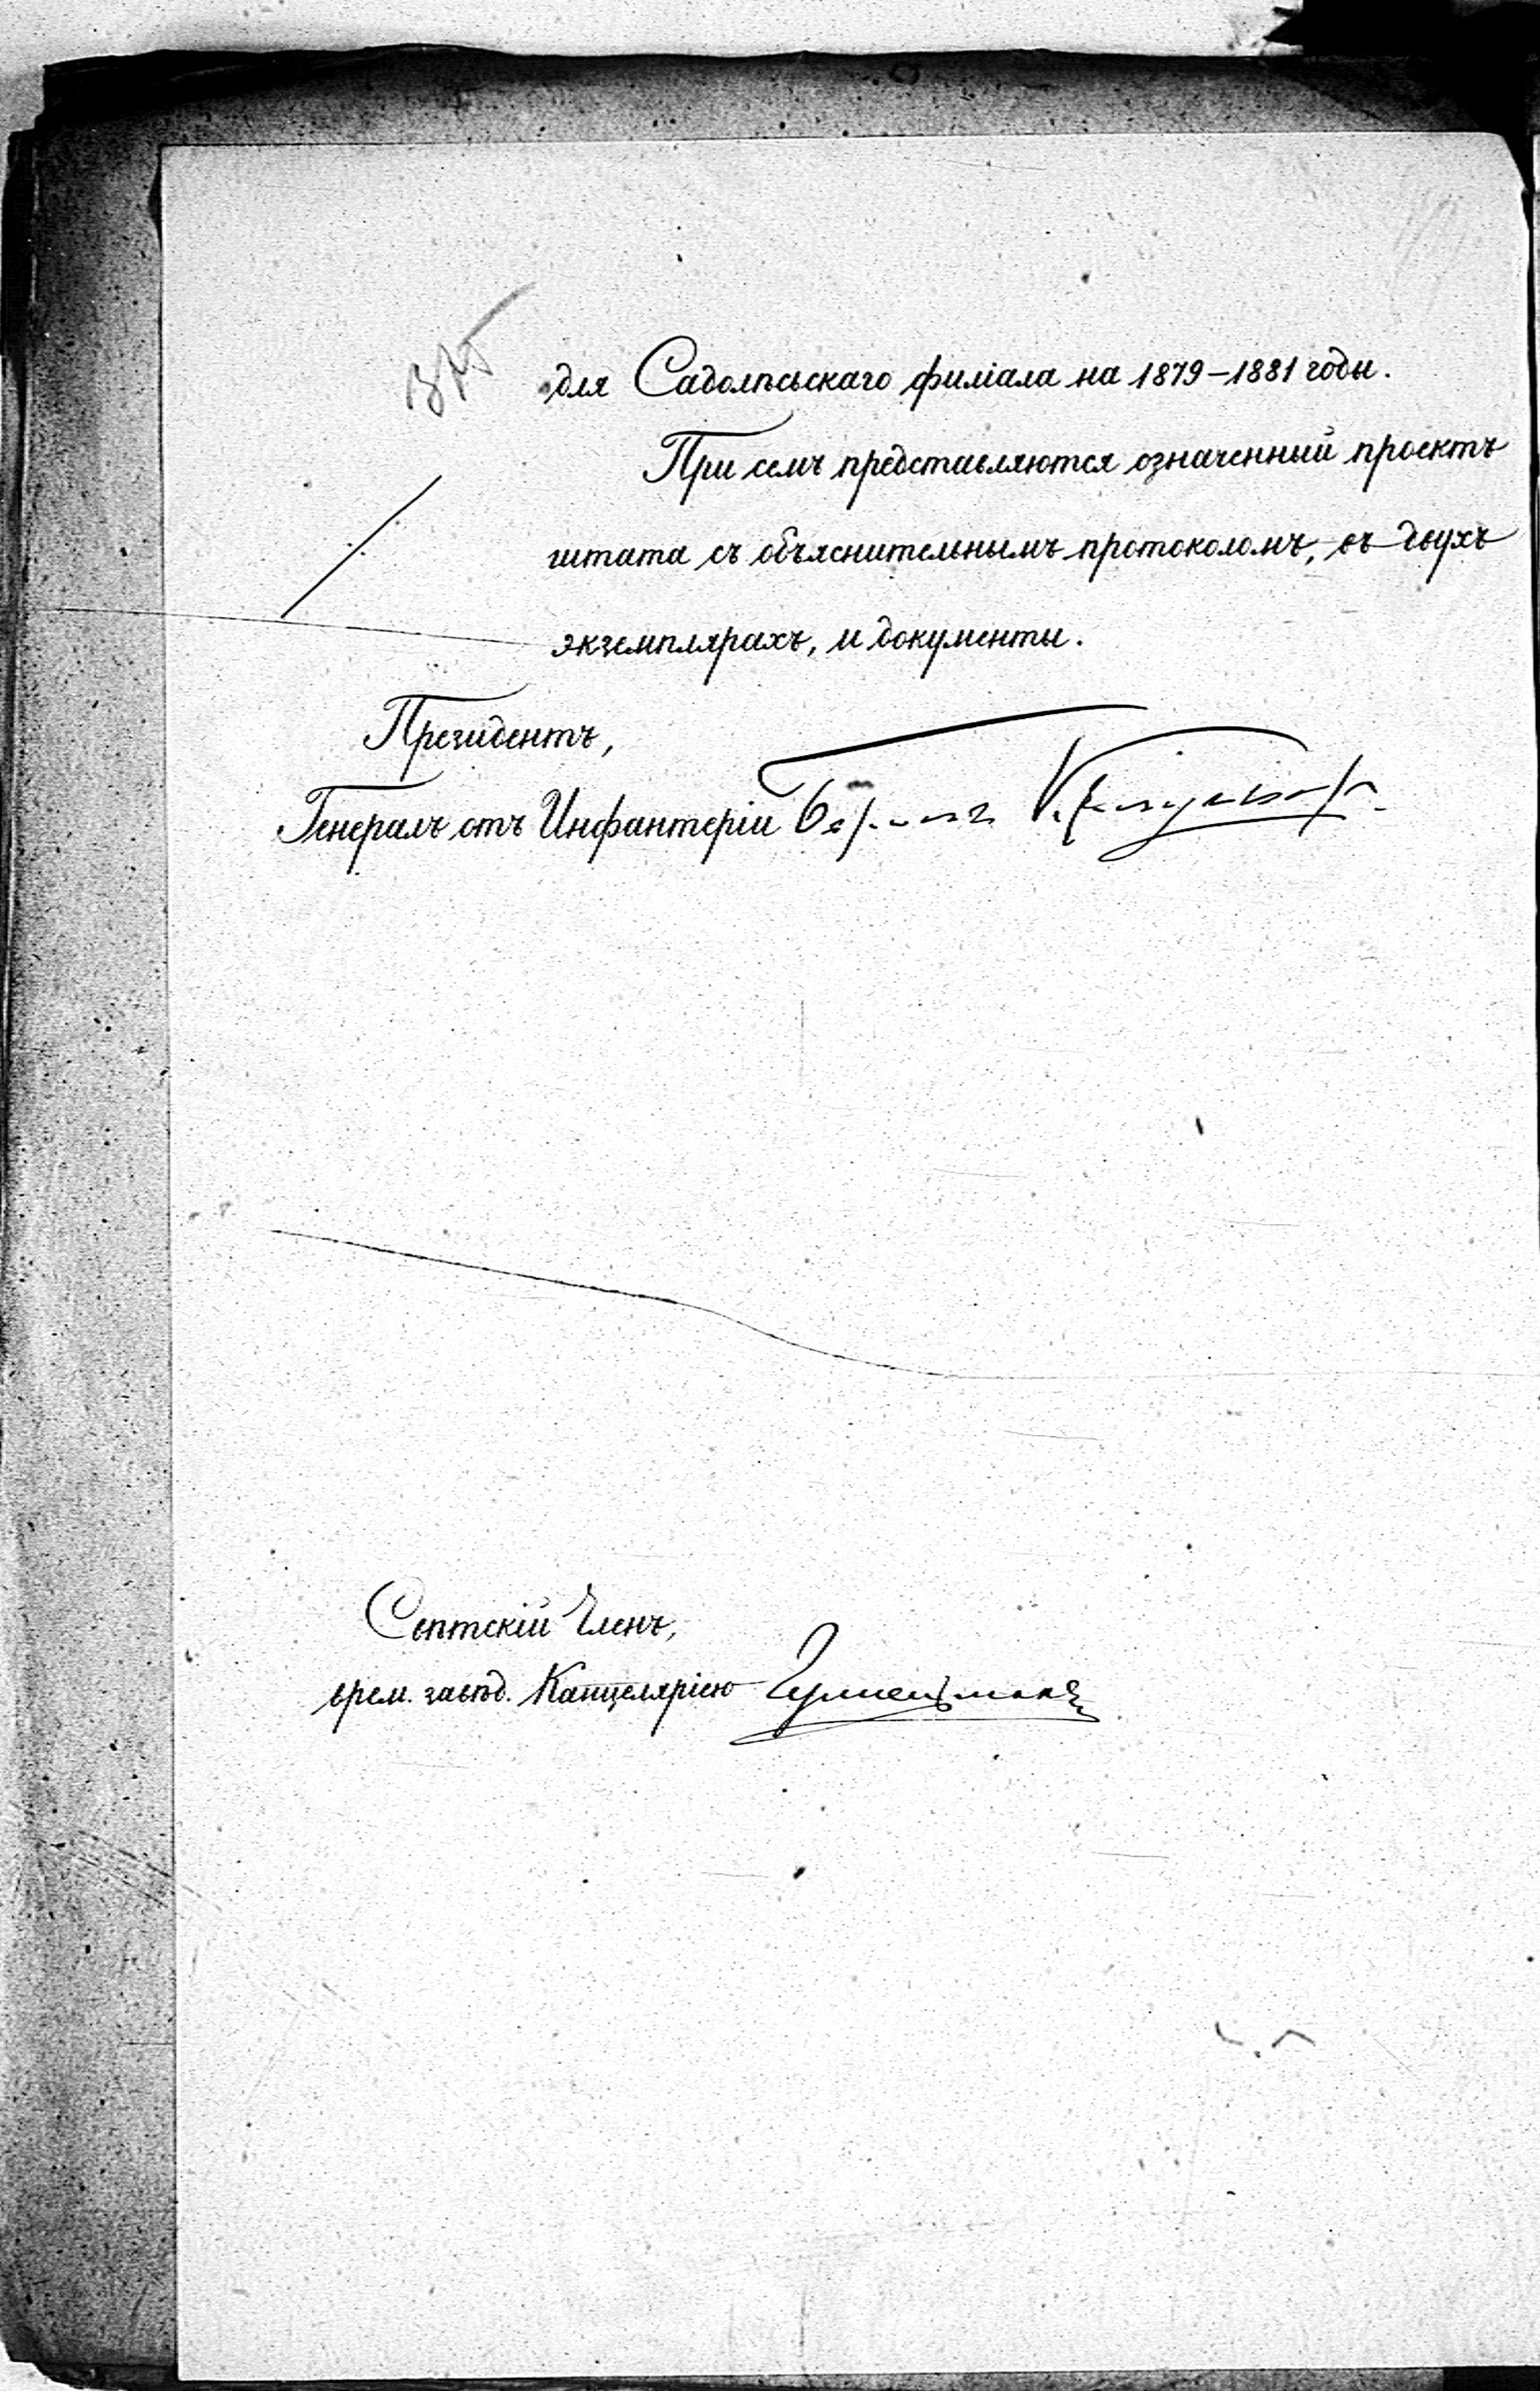 для Садолпсьскаго филіала на 1879–1881 годы.
При семъ представляются означенный проектъ
штата съ объяснительнымъ протоколомъ, въ двухъ
экземплярахъ, и документы.
Президентъ,
Генералъ отъ Инфантеріи
Членъ,
врем. завѣд. Канцеляріею